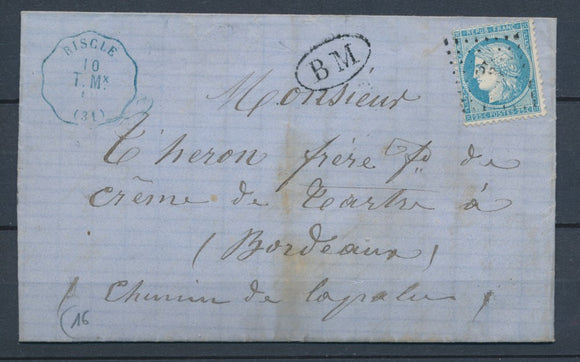 RISCLE
10
T. Mx
(31)
BM
REPUB. FRANC.
25 C. POSTES 25 C.
Monsieur
Théron frère fts de
crême de Tartre à
(Bordeaux)
Chemin de Lapalu
(16